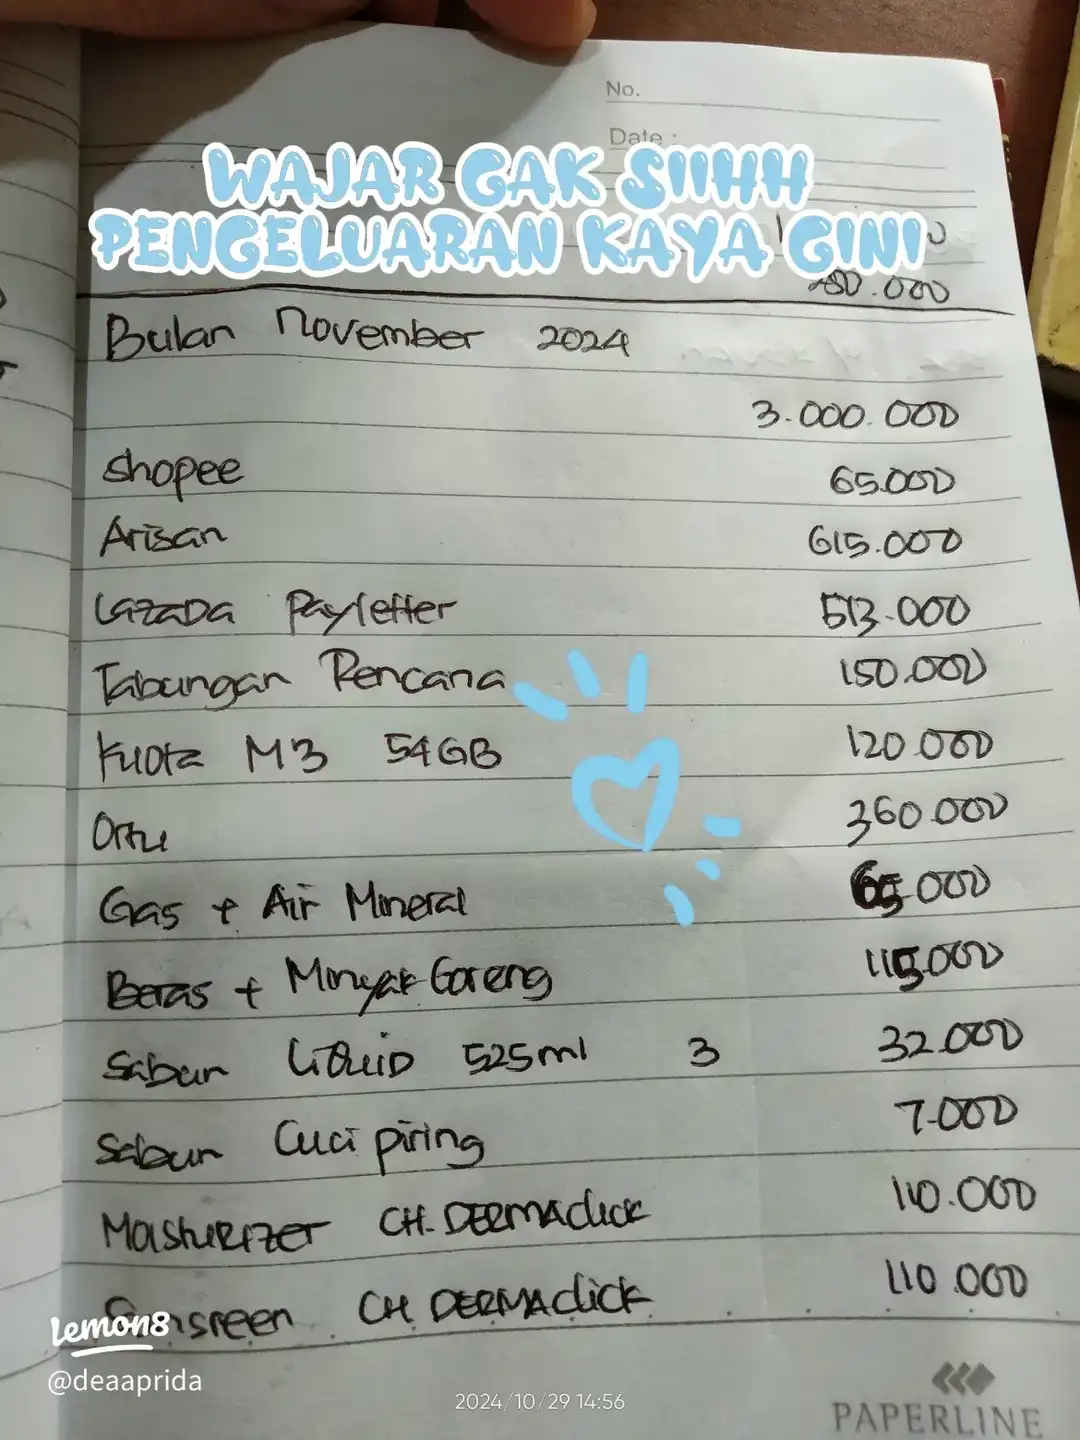 No.
Date :
WAJAR GAK SIIHH
PENGELUARAN KAYA GINI
Bulan November 2024
3.000.000
Shopee 65.000
Arisan 615.000
Lazada Payletter 513.000
Tabungan Rencana 150.000
Kuota M3 54GB 120.000
Ortu 360.000
Gas + Air Mineral 65.000
Beras + Minyak Goreng 115.000
Sabun Liquid 525ml 3 32.000
Sabun Cuci piring 7.000
Moisturizer CH. DERMAclick 110.000
Sunsreen CH DERMAclick 110.000
Lemon8
@deaaprida
2024/10/29 14:56
PAPERLINE